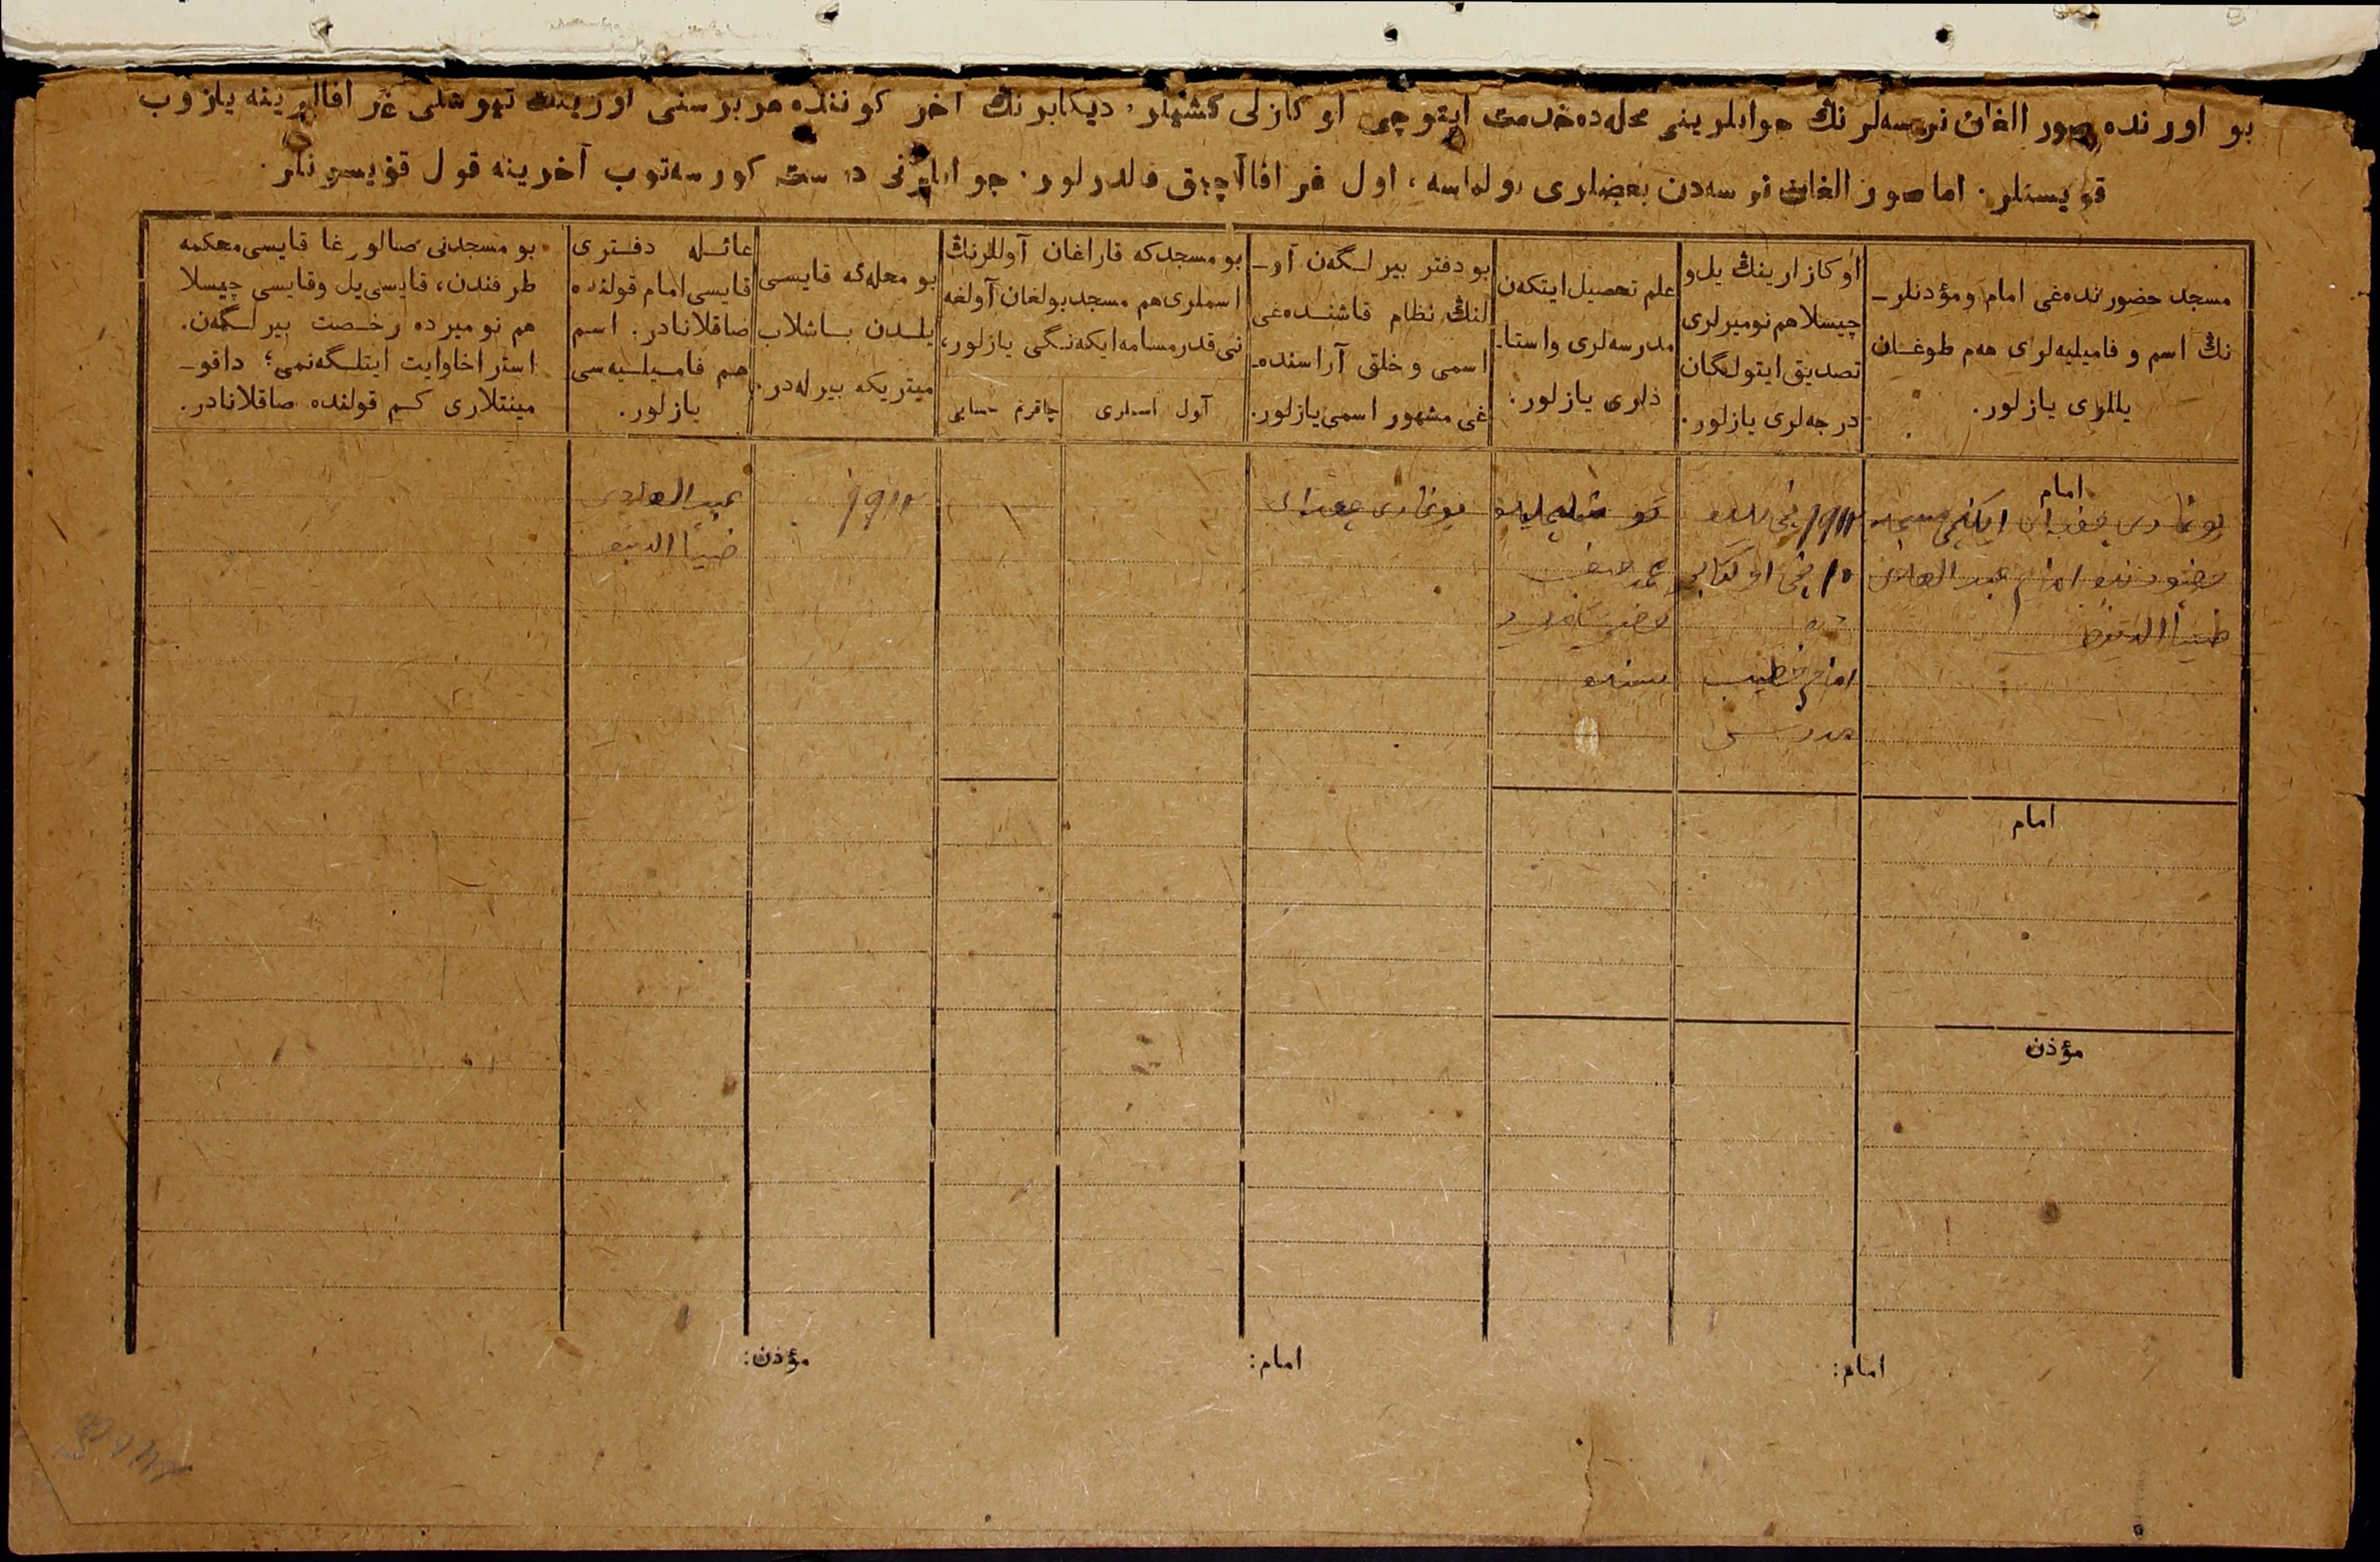 بو اورنده صور الغان نرسه‌لرنڭ جوابلرینی محله‌ده خدمت ایتوچی اوکازلی کشیلر، دیکابرنڭ اخر کوننده هر برسنی اورینه تیوشلی غرافالرینه یازوب
قویسنلر. اما صور الغان نرسه‌دن بعضلری بولماسه، اول غرافا آچیق قالدرلور. جوابلرنی درست کورسه‌توب آخرینه قول قویسونلر.
مسجد حضورنده‌غی امام ومؤذنلر-
نڭ اسم و فامیلیه‌لری هەم طوغان
یللری یازلور.
اوکازارینڭ یل و
چیسلا هم نومیرلری
تصدیق ایتولگان
درجه‌لری یازلور.
علم تحصیل ایتکەن
مدرسه‌لری واستا-
ذلری یازلور.
بو دفتر بیرلگەن آو-
لنڭ نظام قاشنده‌غی
اسمی وخلق آراسنده-
غی مشهور اسمی یازلور.
بو مسجدکه قاراغان آوللرنڭ
اسملری هم مسجد بولغان آولغه
نی قدر مسافه ایکەنگی یازلور،
آول اسملری
چاقرم حسابی
بو محله‌گه قایسی
یلدن باشلاب
میتریکه بیرلەدر.
عائله دفتری
قایسی امام قولنده
صاقلانادر. اسم
هم فامیلیه‌سی
یازلور.
بو مسجدنی صالورغا قایسی محکمه
طرفندن، قایسی یل وقایسی چیسلا
هم نومیرده رخصت بیرلگەن.
استراخاوایت ایتلگەنمی؟ داقو-
مینتلاری کم قولنده صاقلانادر.
امام
ایکنچی مسجد
حضورنده امام عبد الهادی
ضیأ الدینف
1911 نچی یلده
10 نچی
امام خطیب
مدرس
1911
عبد الهادی
ضیأ الدینف
امام
مؤذن
امام:
امام:
مؤذن: